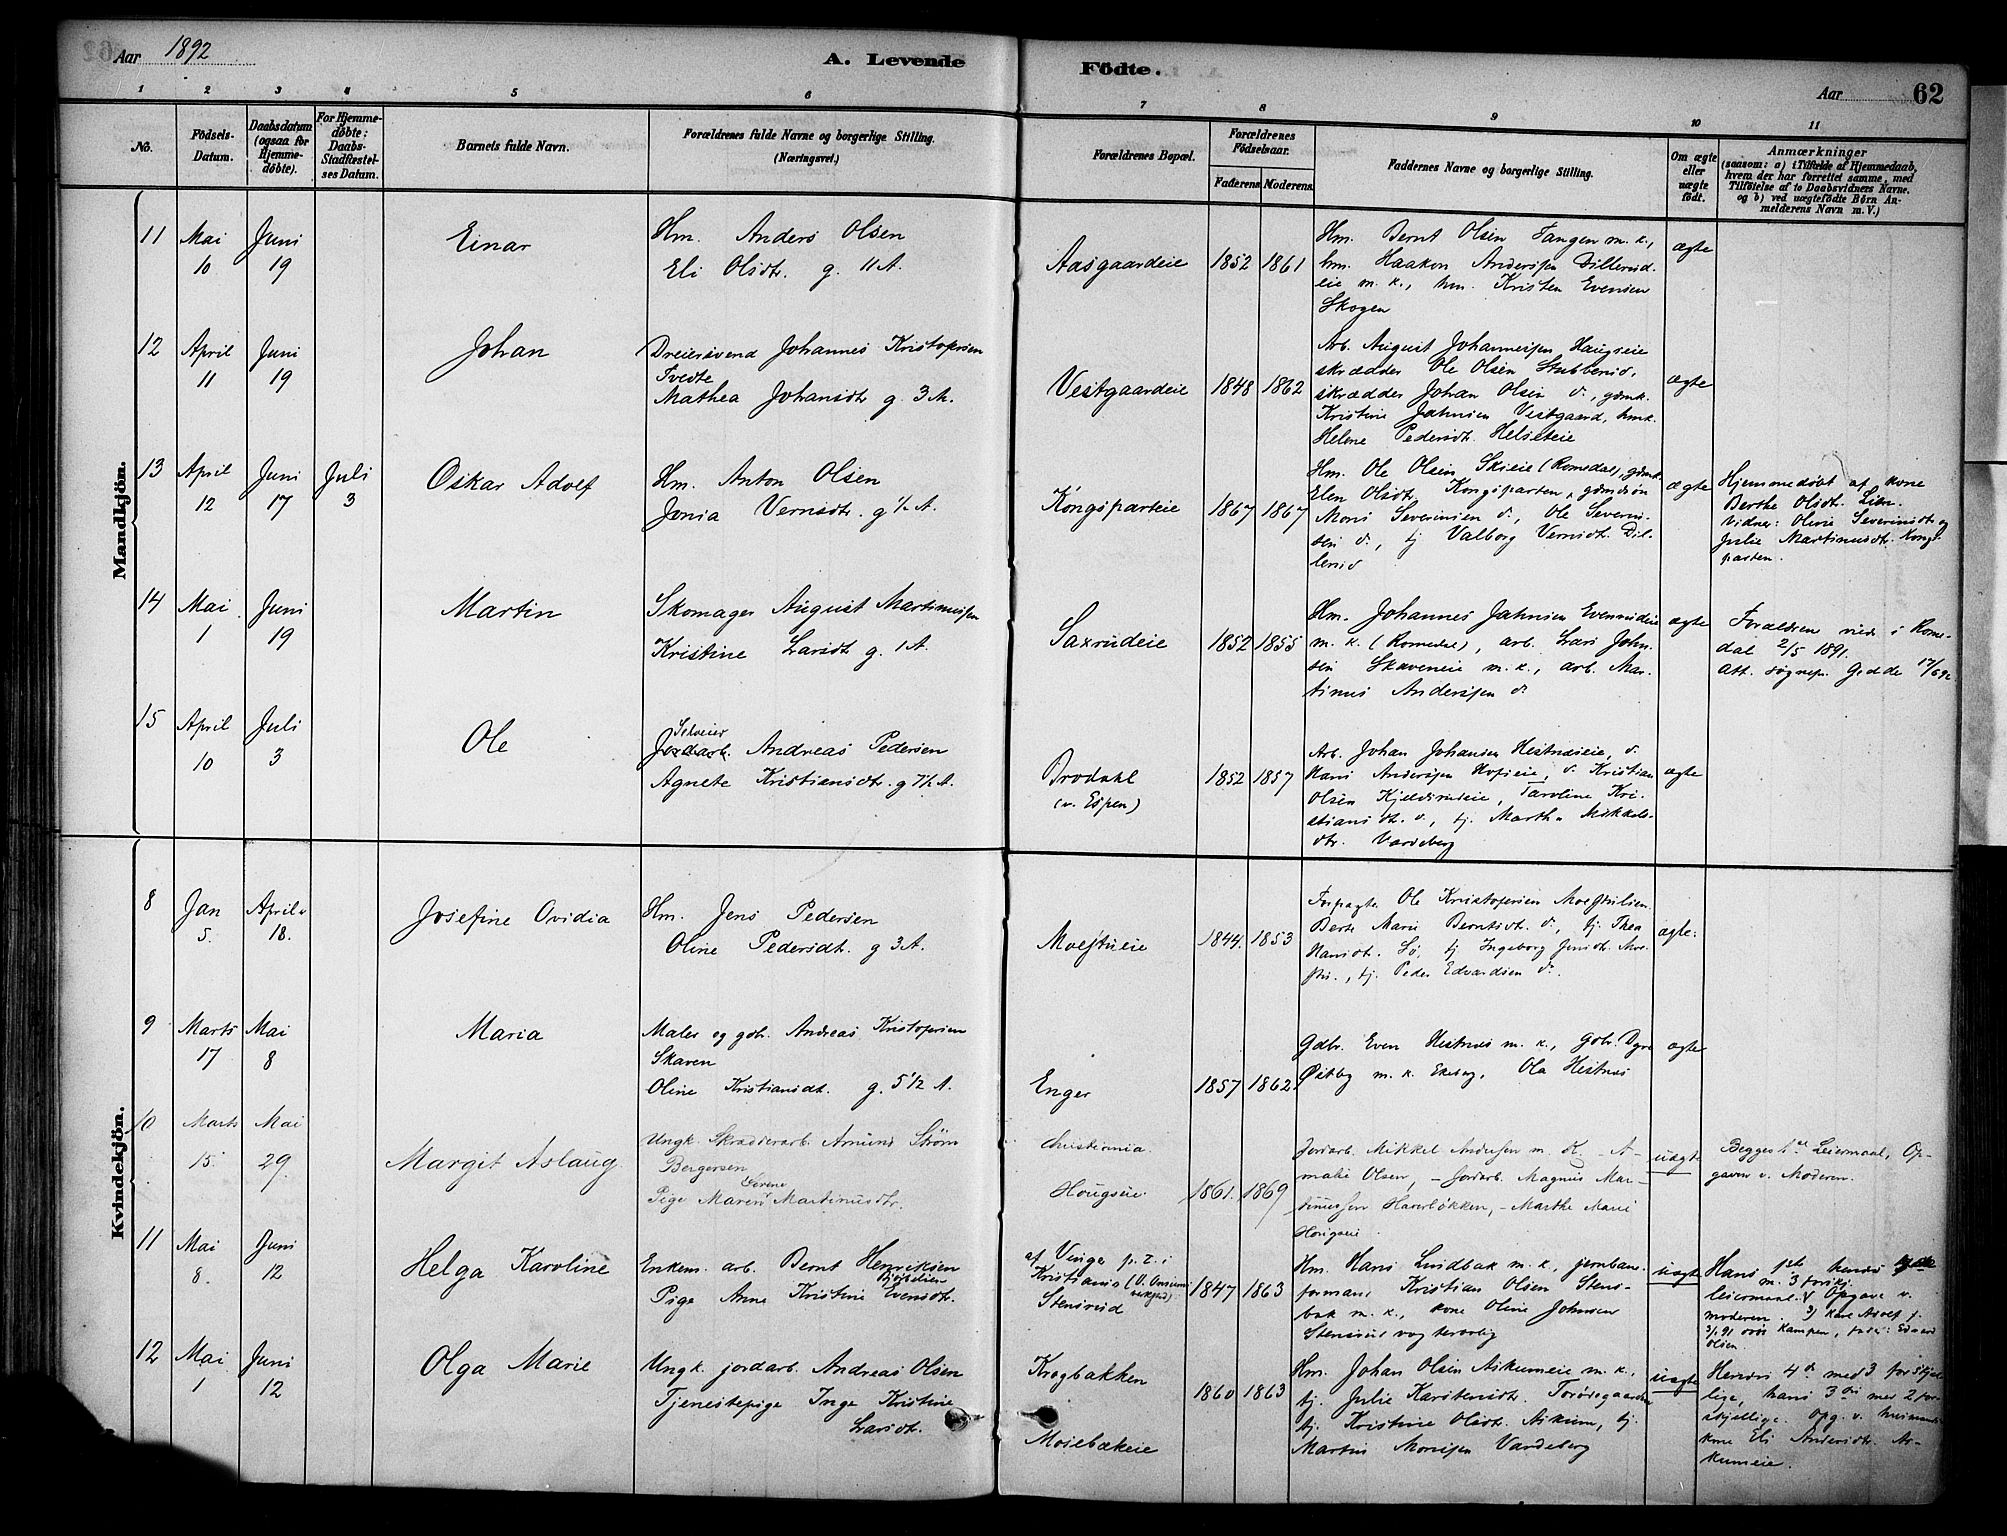 Aar 1892
A. Levende
Födte.
Aar
62
1 2 3 4 5 6 7 8 9 10 11
No.
Födsels-
Datum.
Daabsdatum
(ogsaa for
Hjemme-
döbte).
For Hjemme-
döbte:
Daabs-
Stadfæstel-
ses Datum.
Barnets fulde Navn.
Forældrenes fulde Navne og borgerlige Stilling.
(Næringsvei.)
Forældrenes Bopæl.
Forældrenes
Födselsaar.
Faderens Moderens
Faddernes Navne og borgerlige Stilling.
Om ægte
eller
uægte
födt.
Anmærkninger
(saasom: a) i Tilfælde af Hjemmedaab,
hvem der har forrettet samme, med
Tilföielse af to Daabsvidners Navne.
og b) ved uægtefödte Börn An-
melderens Navn m. V.)
Mandkjön.
11
Mai
10
Juni
19
Einar
Hm. Anders Olsen
Eli Olsdtr. g. 11 A.
Aasgaardeie
1852 1861
Hm. Bernt Olsen Tangen m. k.,
hm. Haaken Andersen Dillerud-
eie m. k., hm. Kristen Evensen
Skogen
ægte
12
April
11
Juni
19
Johan
Dreiersvend Johannes Kristofersen
Tvedte
Mathea Johansdtr g. 3 A.
Vestgaardeie
1848 1862
Arb. August Johannessen Haugseie
skrædder Ole Olsen Stubberud,
skrædder Johan Olsen d., gdmk.
Kristine Jahnsen Vestgaard, hmk.
Helene Pedersdtr. Helseteie
ægte
13
April
12
Juni
17
Juli
3
Oskar Adolf
Hm. Anton Olsen
Jonia Vernsdtr. g ½ A.
Kongsparteie
1867 1867
Hm. Ole Olsen Skieie (Romedal), gdmk
Elen Olsdtr. Kongsparten, gdmdsøn
Mons Severinsen d., Ole Severin-
sen d., tj Valborg Vernsdtr. Dil-
lerud
ægte
Hjemmedøbt af kone
Berthe Olsdtr. Lien.
Vidner: Olivie Severinsdtr og
Julie Martinusdtr. Kongs-
parten.
14
Mai
1
Juni
19
Martin
Skomager August Martinussen
Kristine Larsdtr g. 1 A.
Saxrudeie
1852 1855
Hm. Johannes Jahnsen Evenrudeie
m. k. (Romedal), arb. Lars John-
sen Skaveneie m. k., arb. Mar-
tinus Andersen d.
ægte
Forældrene viede i Rome-
dal 2/5 1891.
Att. sognepr. Gedde 17/6 92
15
April
10
Juli
3
Ole
Selveier
Jordarb. Andreas Pedersen
Agnete Kristiansdtr. g 7½ A.
Brodahl
(v. Espen)
1852 1857
Arb. Johan Johansen Hestnæseie, d.
Hans Andersen Hofseie, d. Kristian
Olsen Kjeldsrudeie, Karoline Kri-
stiansdtr. d., tj. Martha Mikkels-
dtr. Vardeberg
ægte
Kvindekjön.
8
Jan
5.
April
18.
Josefine Ovidia
Hm. Jens Pedersen
Oline Pedersdtr. g 3 A.
Moestueie
1844. 1853
Forpagter Ole Kristofersen
Berte Marie Berntsdtr. d., tj. Thea
Hansdtr. tj Ingeborg Jensdtr.
tj. Peder Edvardsen d.
ægte.
9
Marts
17
Mai
8
Maria
Maler og gdbr. Andreas Kristofersen
Skaven
Oline Kristiansdtr. g. 5½ A.
Enger
1857 1862
Gdbr. Even Hestnæs m. k., gdbr.
Østby m. k. Ekeberg, Ola Hestnæs
ægte
10
Marts
15.
Mai
29.
Margit Aslaug
Ungk. Skrædderarb. Amund Strøm
Bergersen
Lorene
Pige Maren Martinusdtr.
Christiania.
Hougseie.
1861. 1869
Jordarb. Mikkel Andersen m. K. - A-
malie Olsen, - Jordarb. Magnus Mar-
tinussen Haverløkken, - Marthe Marie
Hougseie
uægte
Begges 1ste Leiermaal, Op-
gaven v. Moderen.
11
Mai
8.
Juni
12
Helga Karoline
Enkem. arb. Bernt Henriksen
Pige Anne Kristine Evensdtr.
af Vinger p. t. i
Kristiania
Stensrud
1847 1863
Hm. Hans Lindbak m. k., jernban-
formand Kristian Olsen Stens-
bak m. k., kone Oline Johnsen
Stensrud vogterbolig
uægte
Hans 1ste hendes
m. 3 forskj.
leiermaal. Opgave v.
moderen.
Kampen, fader: Edvard
Olsen.
12
Mai
1
Juni
12
Olga Marie
Ungk. jordarb. Andreas Olsen
Tjenestepige Inge Kristine
Larsdtr.
Krogbakken
Mosebækeie
1860 1863
Hm. Johan Olsen Askumeie m. k.,
tj. Julie Karstensdtr. Torødegaarden
tj. Kristine Olsdtr. Askum, tj.
Martin Monsen Vardeberg
uægte
Hendes 4de med 3 forskjel-
lige, hans 3die med 2 for-
skjellige. Opg. v. husmands-
kone Eli Andersdtr. As-
kumeie.